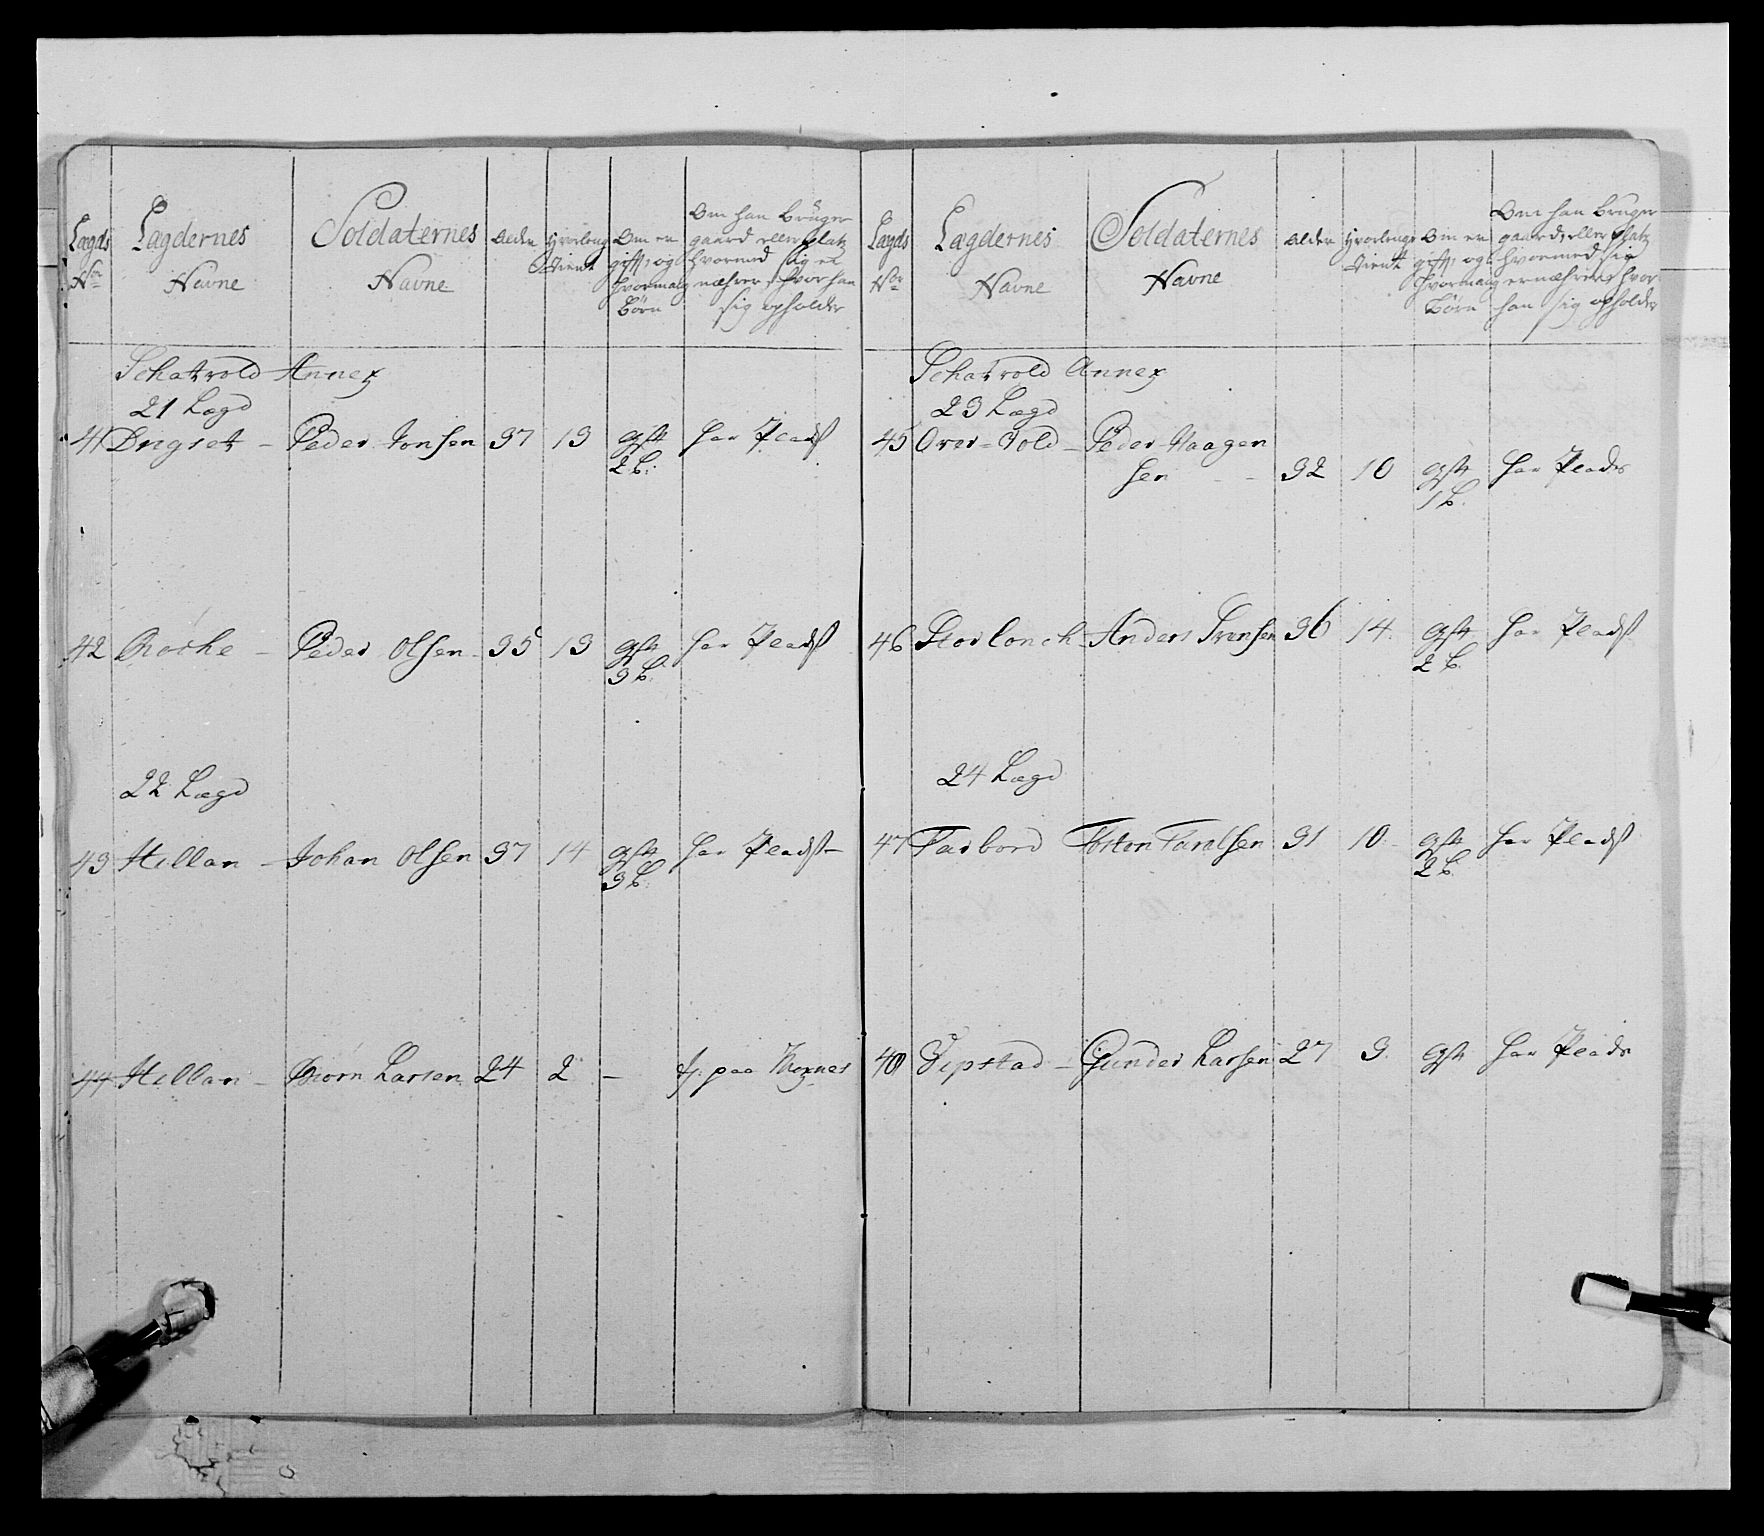 Lægds Nor
Lægdernes Navne
Soldaternes Navne
Alder
Hvorlenge Tient
Om er gift, og hvormang Børn
Om han bruger gaard eller platz hvormed sig er næhrer, hvor han sig opholder
Schatvold Annex
21 Lægd
41 Drugset - Peder Jonsen 37 13 gift 2 b: har Pladss
42 Røske - Peder Olsen 35 13 gift 3 b. har Pladss
22 Lægd
43 Hellan - Johan Olsen 37 14 gift 3 b. har Pladss
44 Hellan - Biørn Larsen 24 2 - paa Moxnes
Lægds Nor
Lægdernes Navne
Soldaternes Navne
Alder
Hvorlenge Tient
Om er gift, og hvormang Børn
Om han bruger gaard, eller platz hvormed sig ernæhrer, hvor han sig opholder
Schatvold Annex
23 Lægd
45 Over-Vold - Peder Haagen
sen - - 32 10 gift 1 b. har Plads
46 Anders 36 14 gift 2 b. har Pladss
24 Lægd
47 Farbord Tosten 31 10 gift 2 b. har Pladss
48 Vepstad - Gunder Larsen 27 3 gift har Plads